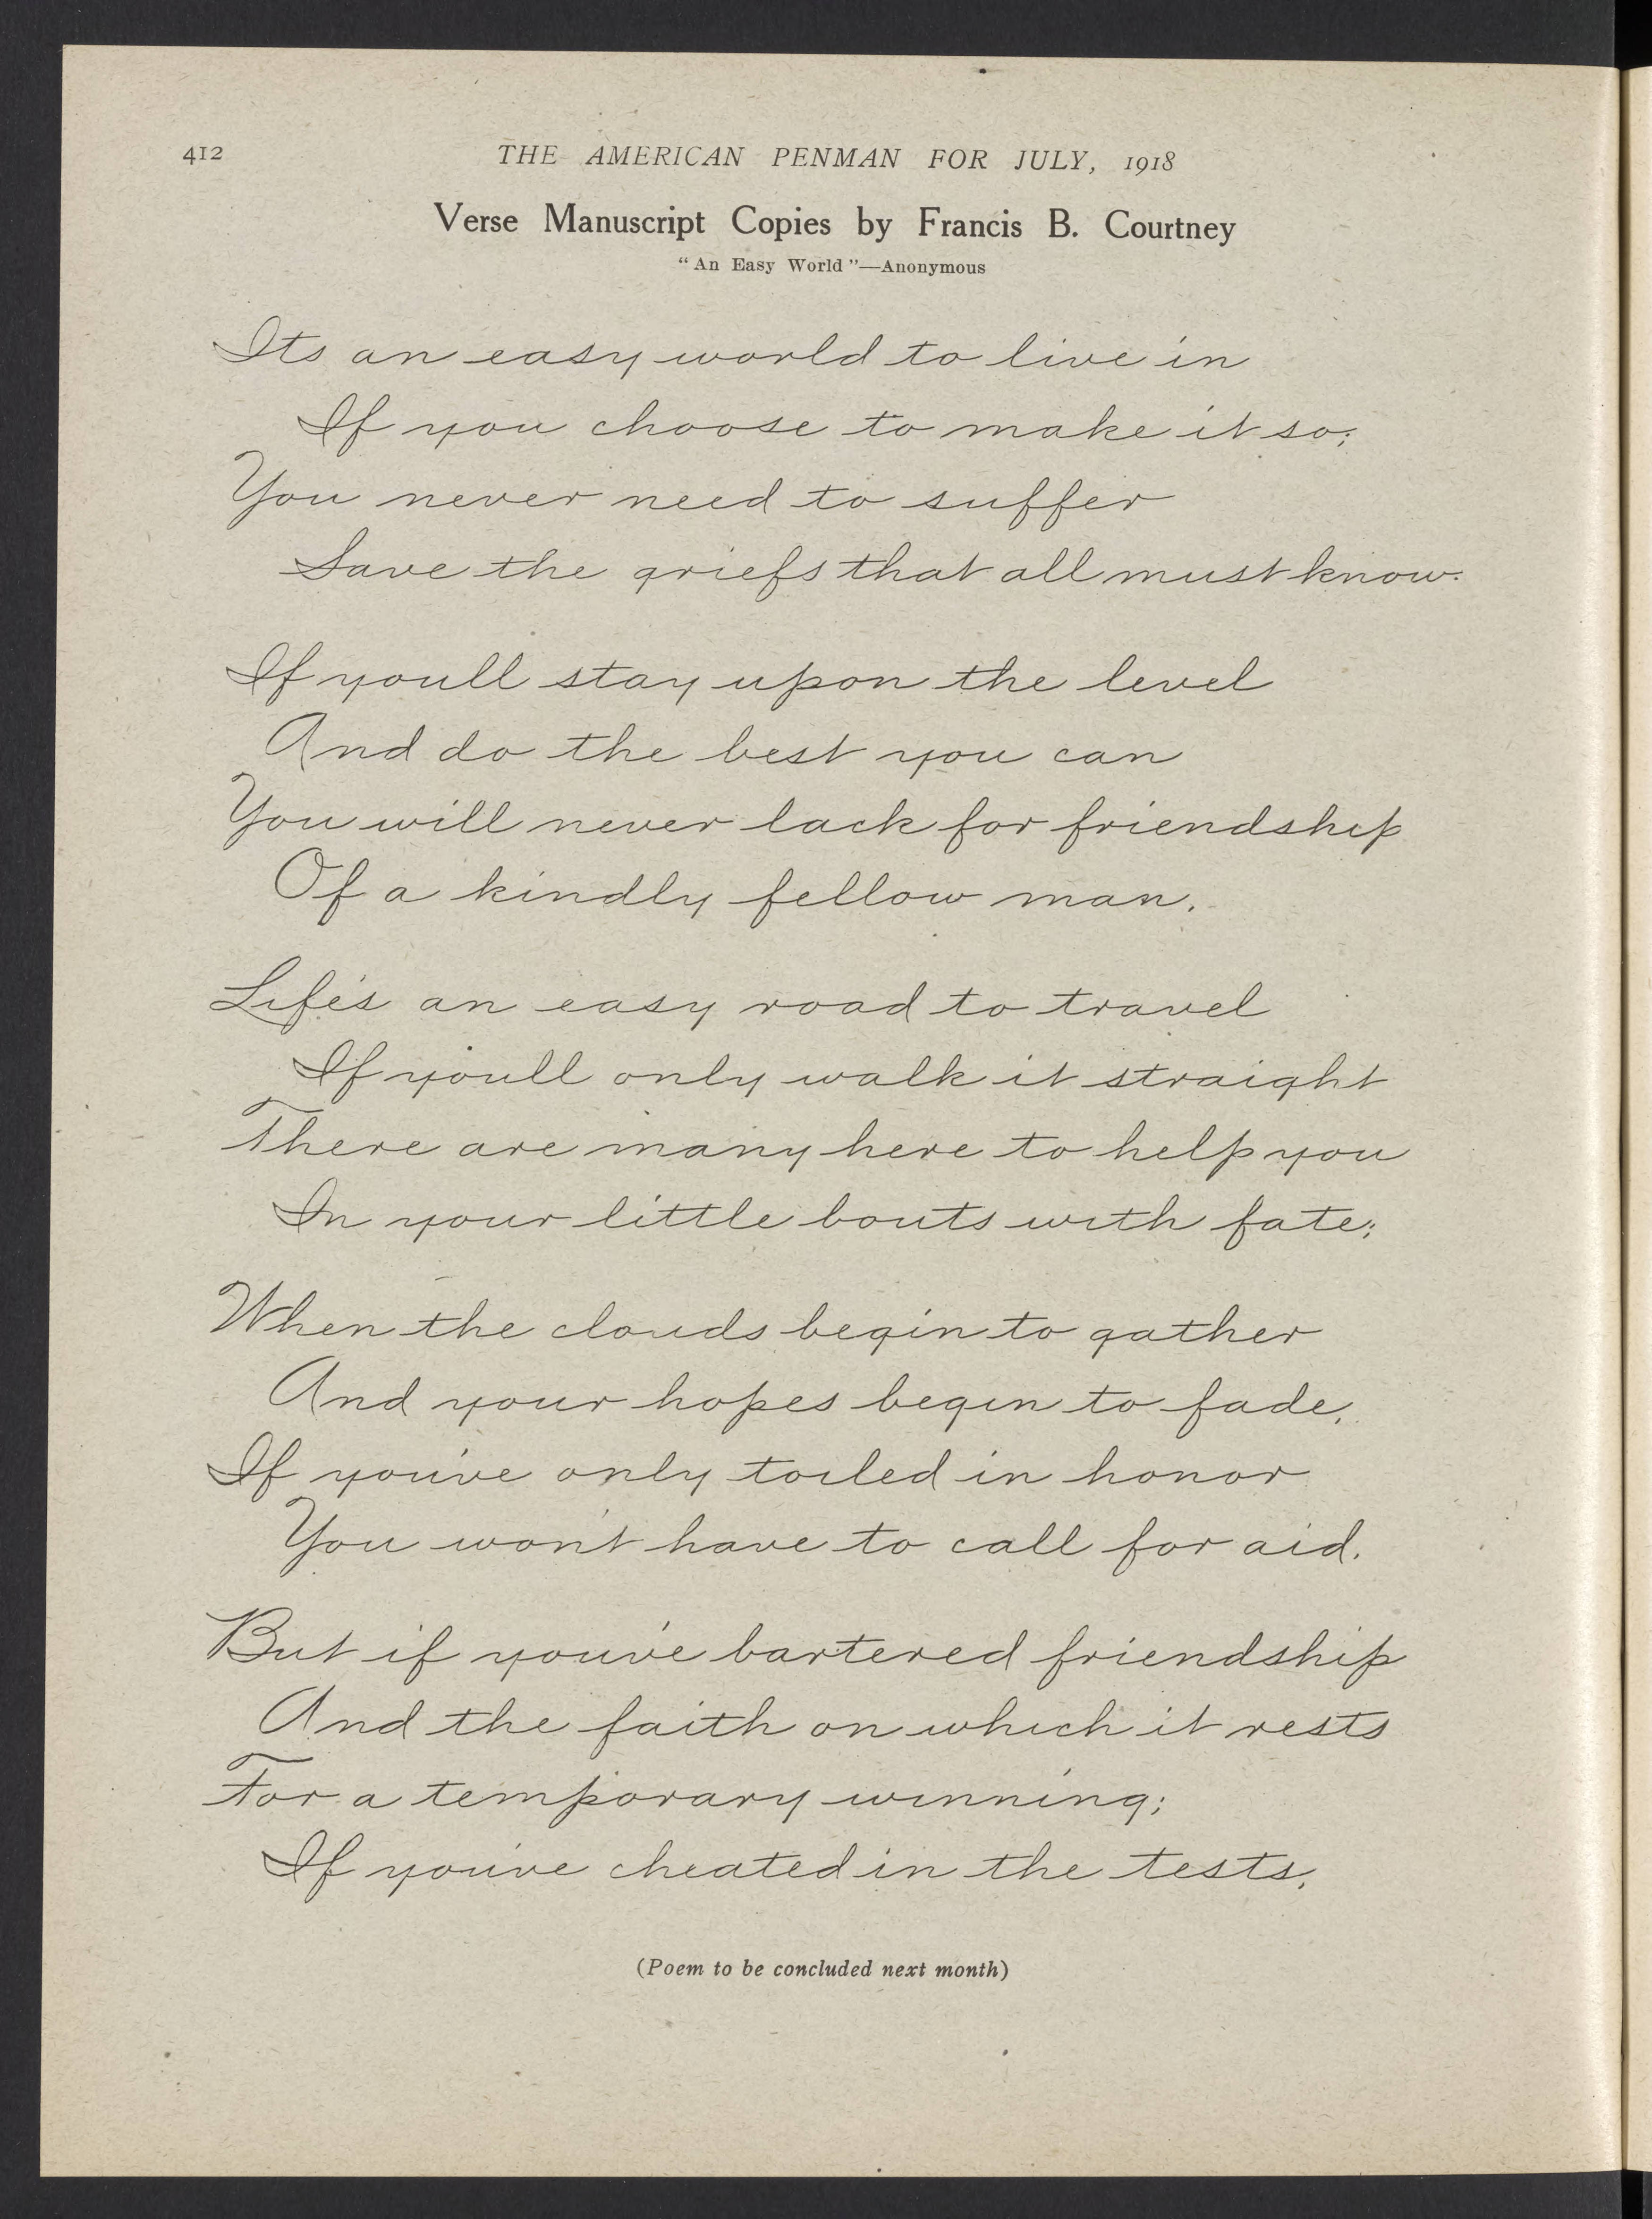 412
THE AMERICAN PENMAN FOR JULY, 1918
Verse Manuscript Copies by Francis B. Courtney
"An Easy World"—Anonymous
Its an easy world to live in
If you choose to make it so;
You never need to suffer
Save the griefs that all must know.
If youll stay upon the level
And do the best you can
You will never lack for friendship
Of a kindly fellow man.
Life's an easy road to travel
If you'll only walk it straight
There are many here to help you
In your little bouts with fate;
When the clouds begin to gather
And your hopes begin to fade,
If you've only toiled in honor
You won't have to call for aid.
But if you've bartered friendship
And the faith on which it rests
For a temporary winning;
If you've cheated in the tests,
(Poem to be concluded next month)